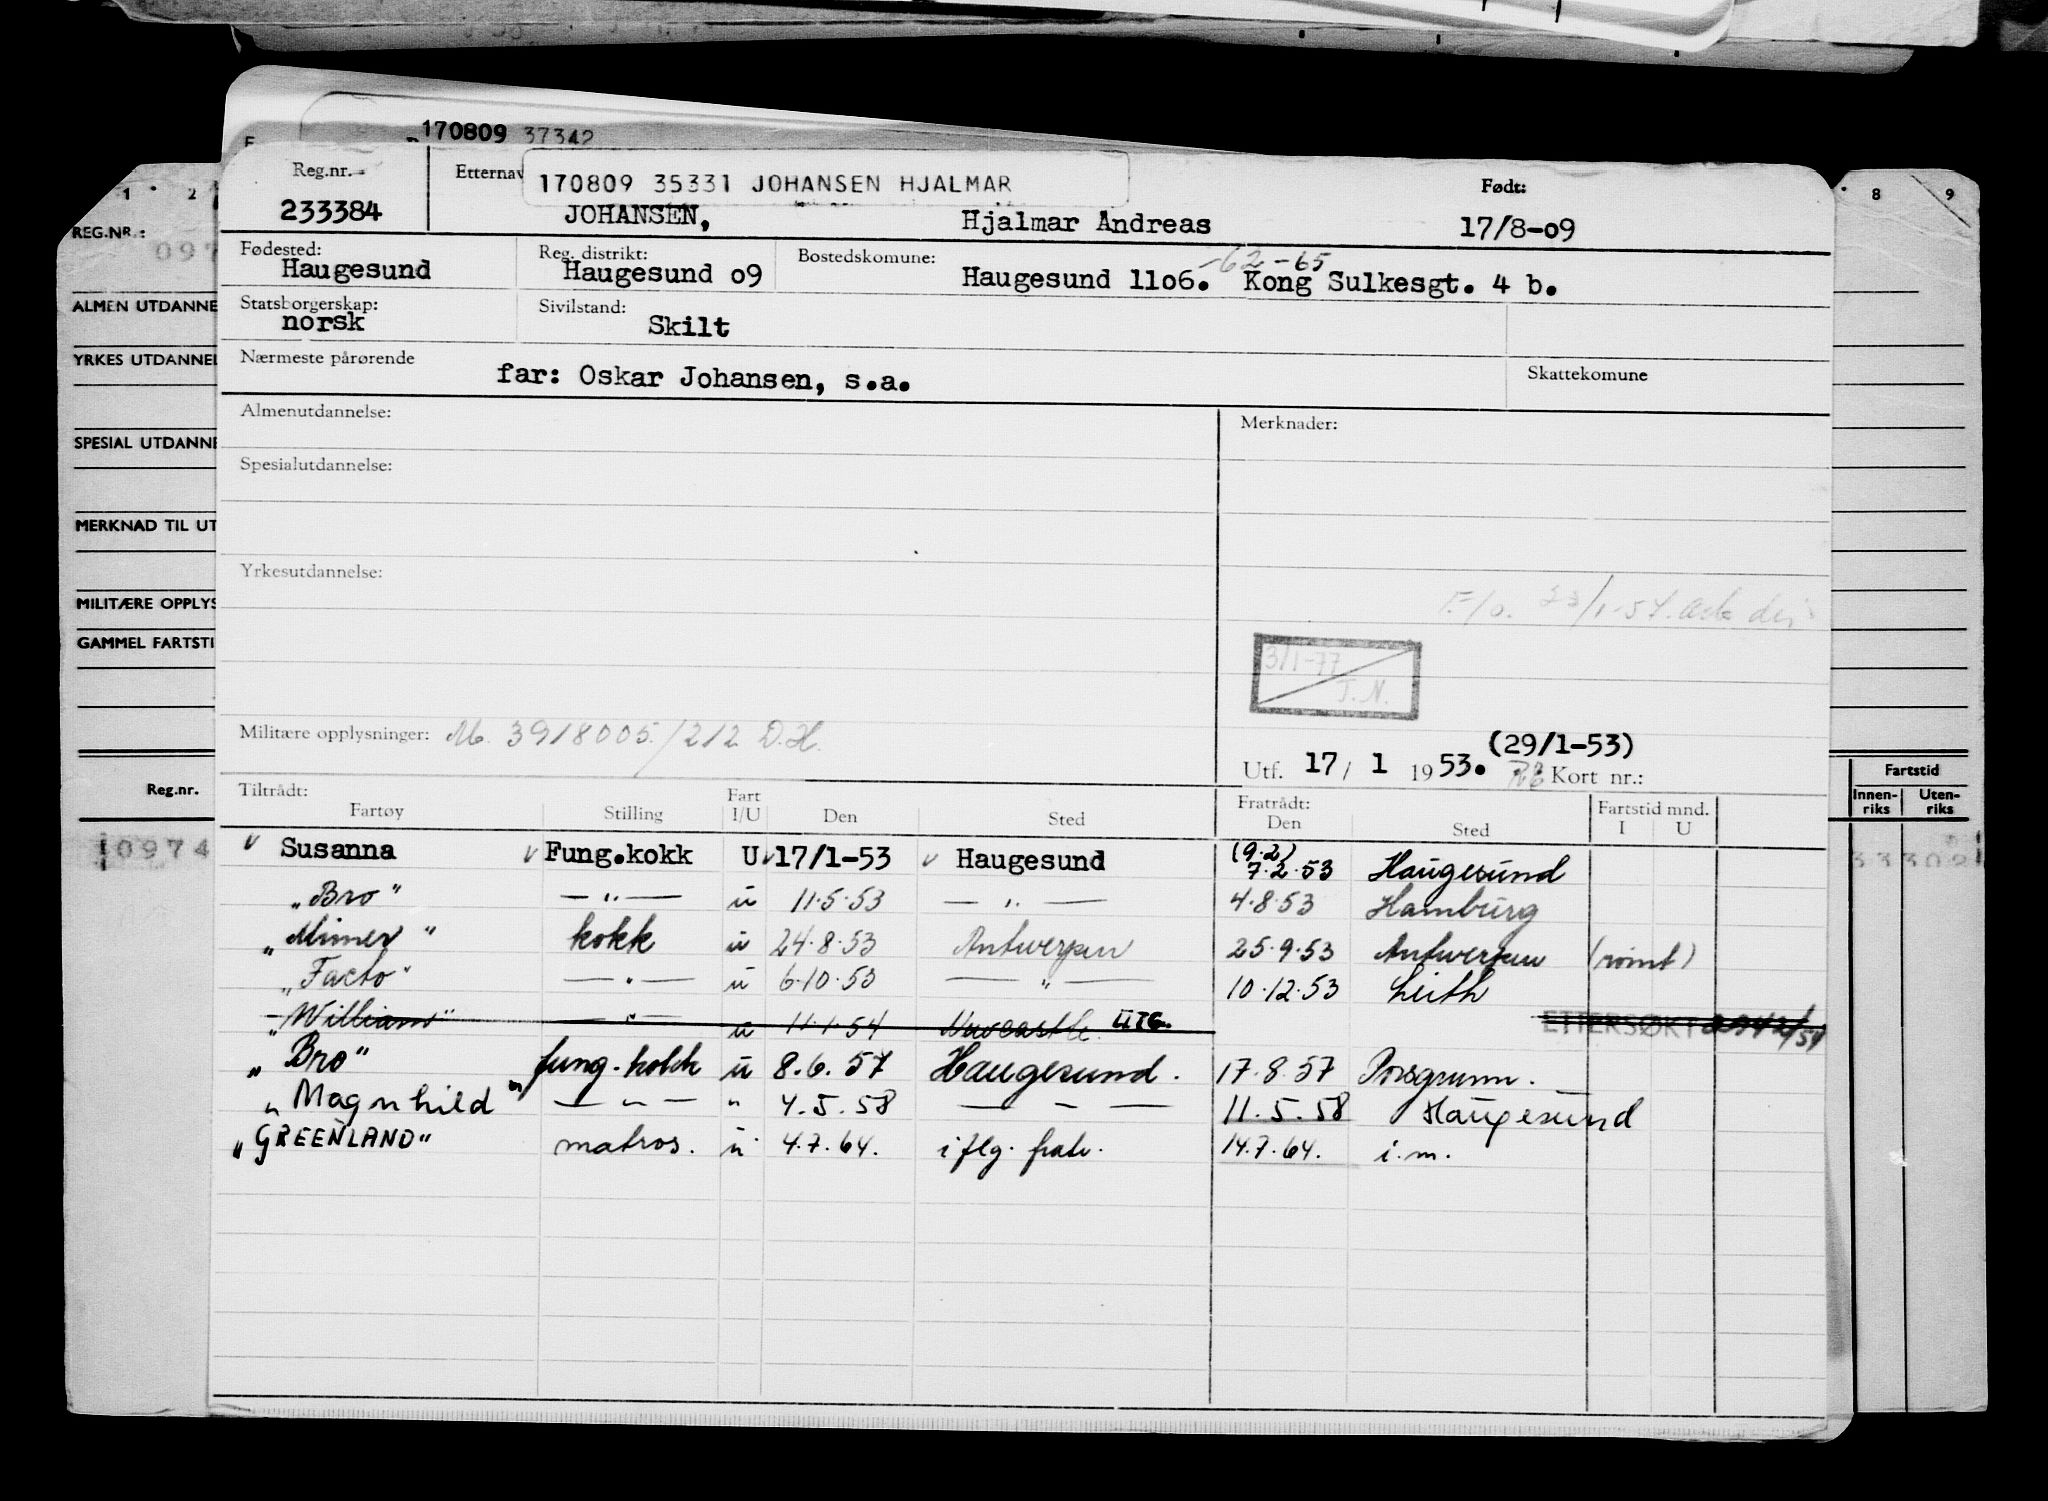 170809 37342
1 2 8 9
REG.NR.: 097
ALMEN UTDANNE
YRKES UTDANNEL
SPESIAL UTDANNE
MERKNAD TIL UT
MILITÆRE OPPLYS
GAMMEL FARTSTI
Reg.nr.
10974
Fartstid
Innen-riks Uten-riks
Reg.nr. Etternav 170809 35331 JOHANSEN HJALMAR Født:
233384 JOHANSEN, Hjalmar Andreas 17/8-09
Fødested: Reg. distrikt: Bostedskomune: -62-65
Haugesund Haugesund 09 Haugesund 1106. Kong Sulkesgt. 4 b.
Statsborgerskap: Sivilstand:
norsk Skilt
Nærmeste pårørende Skattekomune
far: Oskar Johansen, s.a.
Almenutdannelse: Merknader:
Spesialutdannelse:
Yrkesutdannelse:
3/1-77
T.N.
Militære opplysninger: M. 3918005/212 D.H.
(29/1-53)
Utf. 17/ 1 1953. Kort nr.:
Tiltrådt: Fratrådt: Fartstid mnd.
Fartøy Stilling Fart I/U Den Sted Den Sted I U
Susanna Fung.kokk U 17/1-53 Haugesund (9.2) 7.2.53 Haugesund
"Bro" — " — u 11.5.53 — " — 4.8.53 Hamburg
"Mimer" kokk u 24.8.53 Antwerpen 25.9.53 Antwerpen (rømt)
"Facto" — " — u 6.10.53 — " — 10.12.53 Leith
"William" — " — u 11.1.54 Newcastle UTG. ETTERSØKT
"Bro" fung. kokk u 8.6.57 Haugesund. 17.8.57 Porsgrunn.
"Magnhild" — " — " 4.5.58 — " — 11.5.58 Haugesund
"GREENLAND" matros. u 4.7.64. i flg. fratr. 14.7.64. i.m.